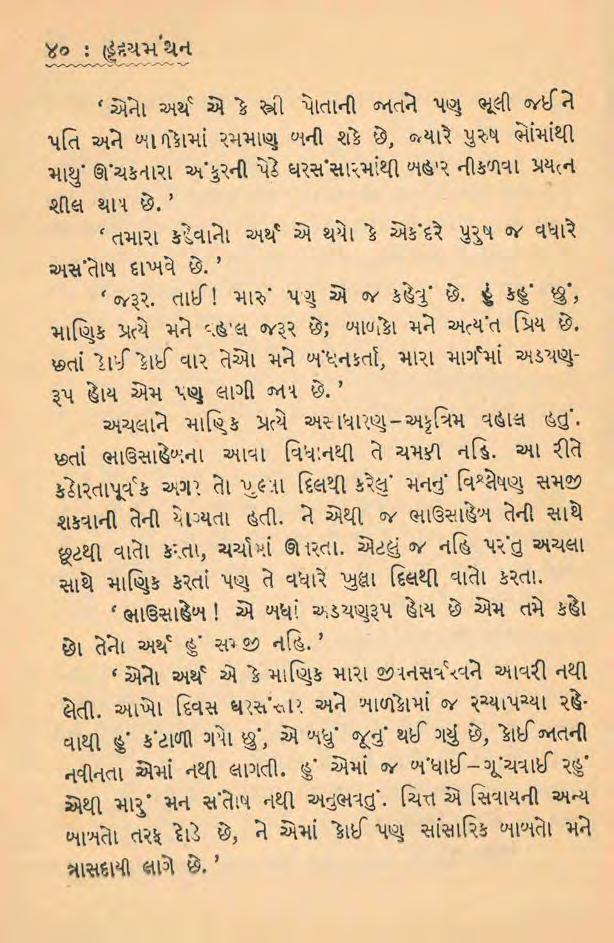 ૪૦ : હૃદયમંથન
‘ એનો અર્થ એ કે સ્ત્રી પોતાની જાતને પણ ભૂલી જઈને
પતિ અને બાળકોમાં રમમાણ બની શકે છે, જ્યારે પુરુષ ભોંમાંથી
માથું ઊંચકનારા અંકુરની પેઠે ઘરસંસારમાંથી બહાર નીકળવા પ્રયત્ન
શીલ થાય છે. ’
‘ તમારા કહેવાનો અર્થ એ થયો કે એકંદરે પુરુષ જ વધારે
અસંતોષ દાખવે છે. ’
‘ જરૂર. તાઈ ! મારું પણ એ જ કહેવું છે. હું કહું છું,
માણિક પ્રત્યે મને વહાલ જરૂર છે; બાળકો મને અત્યંત પ્રિય છે.
છતાં કોઈ કોઈ વાર તેઓ મને બંધનકર્તા, મારા માર્ગમાં અડચણ-
રૂપ હોય એમ પણ લાગી જાય છે. ’
અચલાને માણિક પ્રત્યે અસાધારણ–અકૃત્રિમ વહાલ હતું.
છતાં ભાઉસાહેબના આવા વિધાનથી તે ચમકી નહિ. આ રીતે
કઠોરતાપૂર્વક અગર તો ખુલ્લા દિલથી કરેલું મનનું વિશ્લેષણ સમજી
શકવાની તેની યોગ્યતા હતી. ને એથી જ ભાઉસાહેબ તેની સાથે
છૂટથી વાતો કરતા, ચર્ચામાં ઊતરતા. એટલું જ નહિ પરંતુ અચલા
સાથે માણિક કરતાં પણ તે વધારે ખુલ્લા દિલથી વાતો કરતા.
‘ ભાઉસાહેબ ! એ બધાં અડચણરૂપ હોય છે એમ તમે કહો
છો તેનો અર્થ હું સમજી નહિ. ’
‘ એનો અર્થ એ કે માણિક મારા જીવનસર્વસ્વને આવરી નથી
લેતી. આખો દિવસ ઘરસંસાર અને બાળકોમાં જ રચ્યાપચ્યા રહે-
વાથી હું કંટાળી ગયો છું, એ બધું જૂનું થઈ ગયું છે, કોઈ જાતની
નવીનતા એમાં નથી લાગતી. હું એમાં જ બંધાઈ–ગૂંચવાઈ રહું
એથી મારું મન સંતોષ નથી અનુભવતું. ચિત્ત એ સિવાયની અન્ય
બાબતો તરફ દોડે છે, ને એમાં કોઈ પણ સાંસારિક બાબતો મને
ત્રાસદાયી લાગે છે. ’